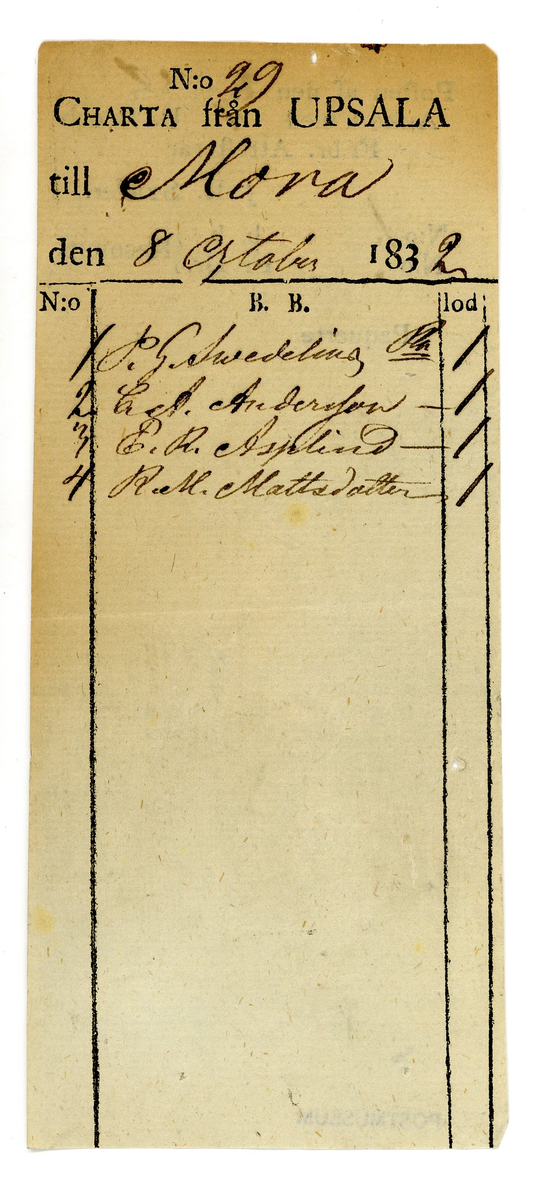 N:o 29
CHARTA från UPSALA
till Mora
den 8 October 1832
N:o B. B. lod
1 P. G. Swedelius 1
2 C. A. Anderson — 1
3 E. R. Asplind — 1
4 K. M. Mattsdotter 1
POSTMUSEUM